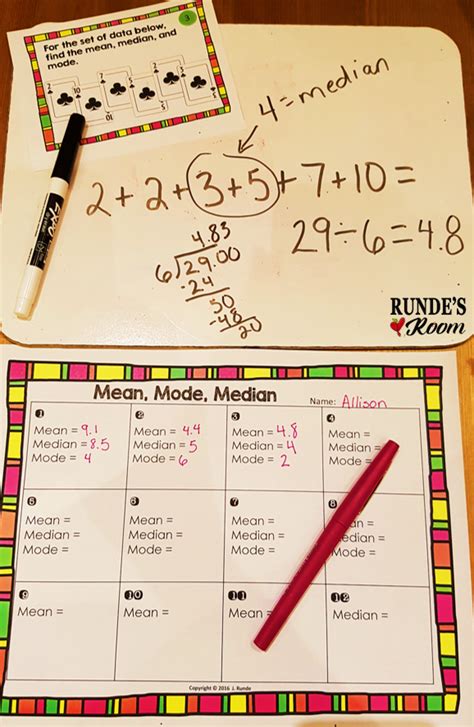 3
For the set of data below,
find the mean, median, and
mode.
10
10
4=median
2+2+3+5+7+10=
29÷6=4.8
4.83
6 29.00
-24
50
-48
20
RUNDE'S
Room
Mean, Mode, Median
Name: Allison
1
Mean = 9.1
Median = 8.5
Mode = 4
2
Mean = 4.4
Median = 5
Mode = 6
3
Mean = 4.8
Median = 4
Mode = 2
4
Mean =
Median =
Mode =
5
Mean =
Median =
Mode =
6
Mean =
Median =
Mode =
7
Mean =
Median =
Mode =
8
an =
edian =
ode =
9
Mean =
10
Mean =
11
Mean =
12
Median =
Copyright © 2016 J. Runde